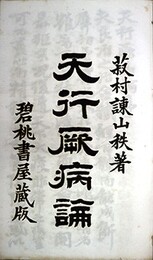 菽村諫山秩著
天行厥病論
碧桃書屋蔵版